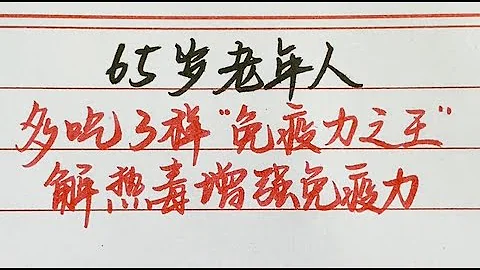 65岁老年人
多吃3样“免疫力之王”
解热毒增强免疫力